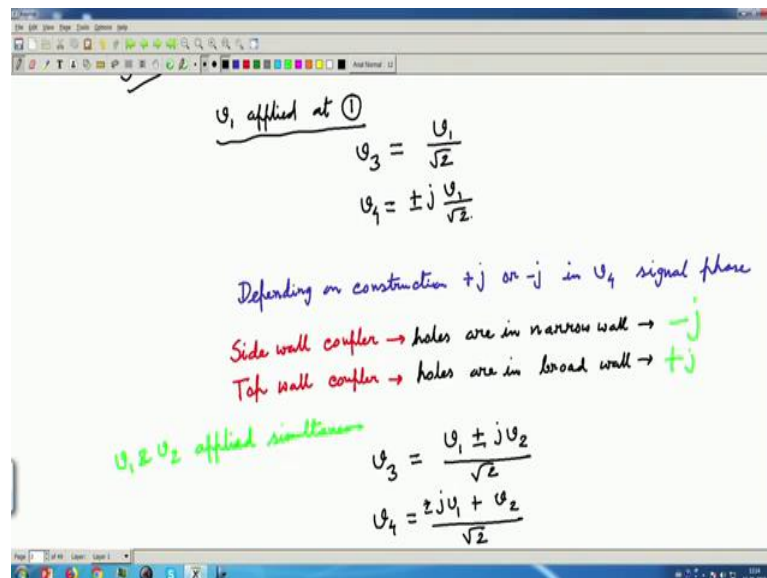 File Edit View Page Tools Options Help
Arial Normal 12
v₁ applied at ①
v₃ = v₁/√2
v₄ = ±j v₁/√2.
Depending on construction +j or -j in v₄ signal phase
Side wall coupler → holes are in narrow wall → -j
Top wall coupler → holes are in broad wall → +j
v₁ & v₂ applied simultaneou
v₃ = (v₁ ± jv₂)/√2
v₄ = (±jv₁ + v₂)/√2
Layer: Layer 1